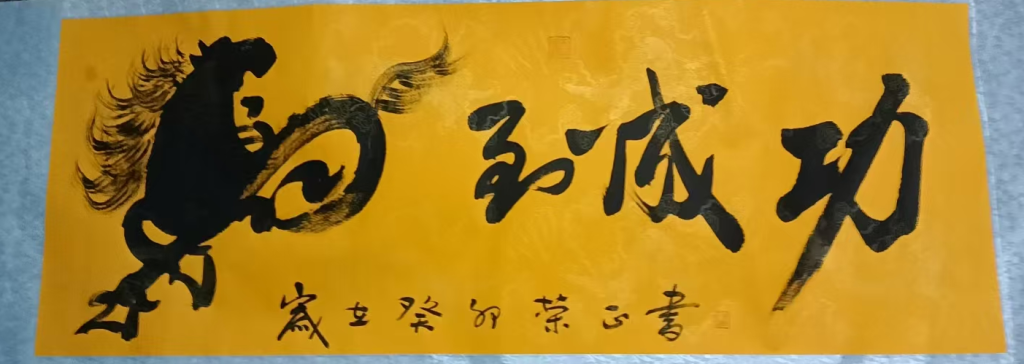 馬到成功
歲在癸卯荣正書